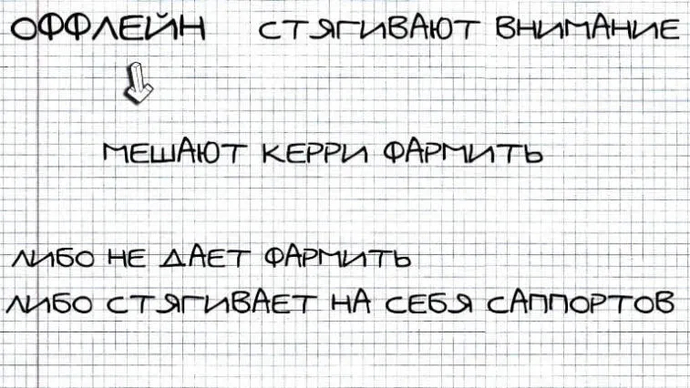 ОФФЛЕЙН СТЯГИВАЮТ ВНИМАНИЕ
МЕШАЮТ КЕРРИ ФАРМИТЬ
ЛИБО НЕ ДАЕТ ФАРМИТЬ
ЛИБО СТЯГИВАЕТ НА СЕБЯ САППОРТОВ